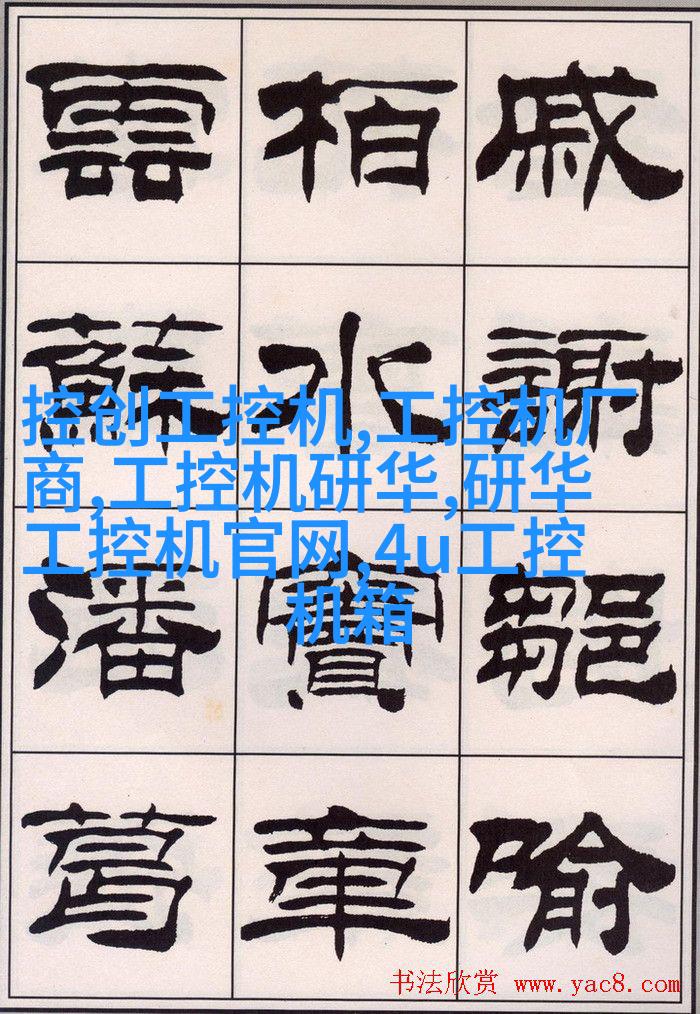 戚謝鄒喻
柏水竇章
雲蘇潘葛
控创工控机,工控机厂
商,工控机研华,研华
工控机官网,4u工控
机箱
书法欣赏 www.yac8.com